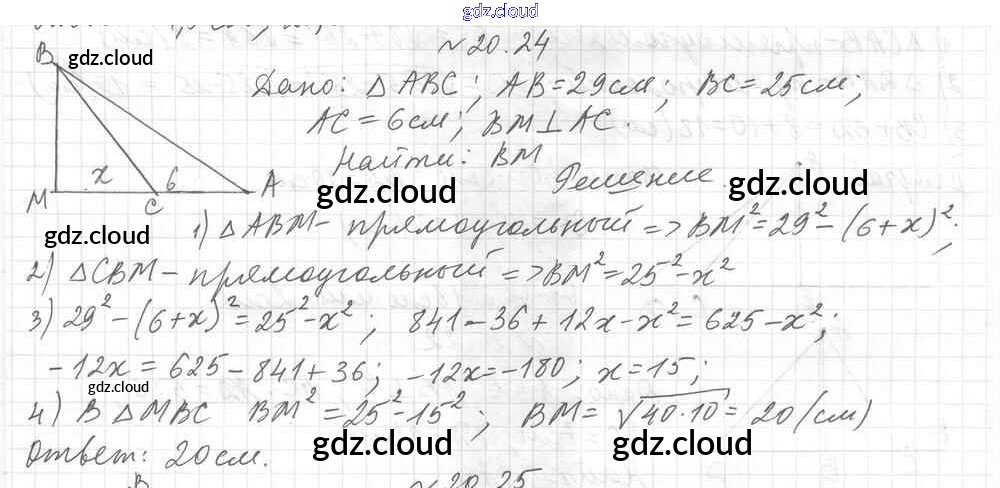 gdz.cloud
№20.24
B gdz.cloud
Дано: △ABC; AB=29см; BC=25см;
AC=6см; BM⊥AC
Найти: BM
x 6
M C A
gdz.cloud Решение gdz.cloud
gdz.cloud
1) △ABM- прямоугольный => BM²=29²-(6+x)²;
2) △CBM- прямоугольный => BM²=25²-x²
3) 29²-(6+x)²=25²-x²; 841-36+12x-x²=625-x²;
-12x=625-841+36; -12x=-180; x=15;
gdz.cloud
4) В △MBC BM²=25²-15²; BM=√40·10=20(см)
Ответ: 20см.
gdz.cloud gdz.cloud
B №20.25